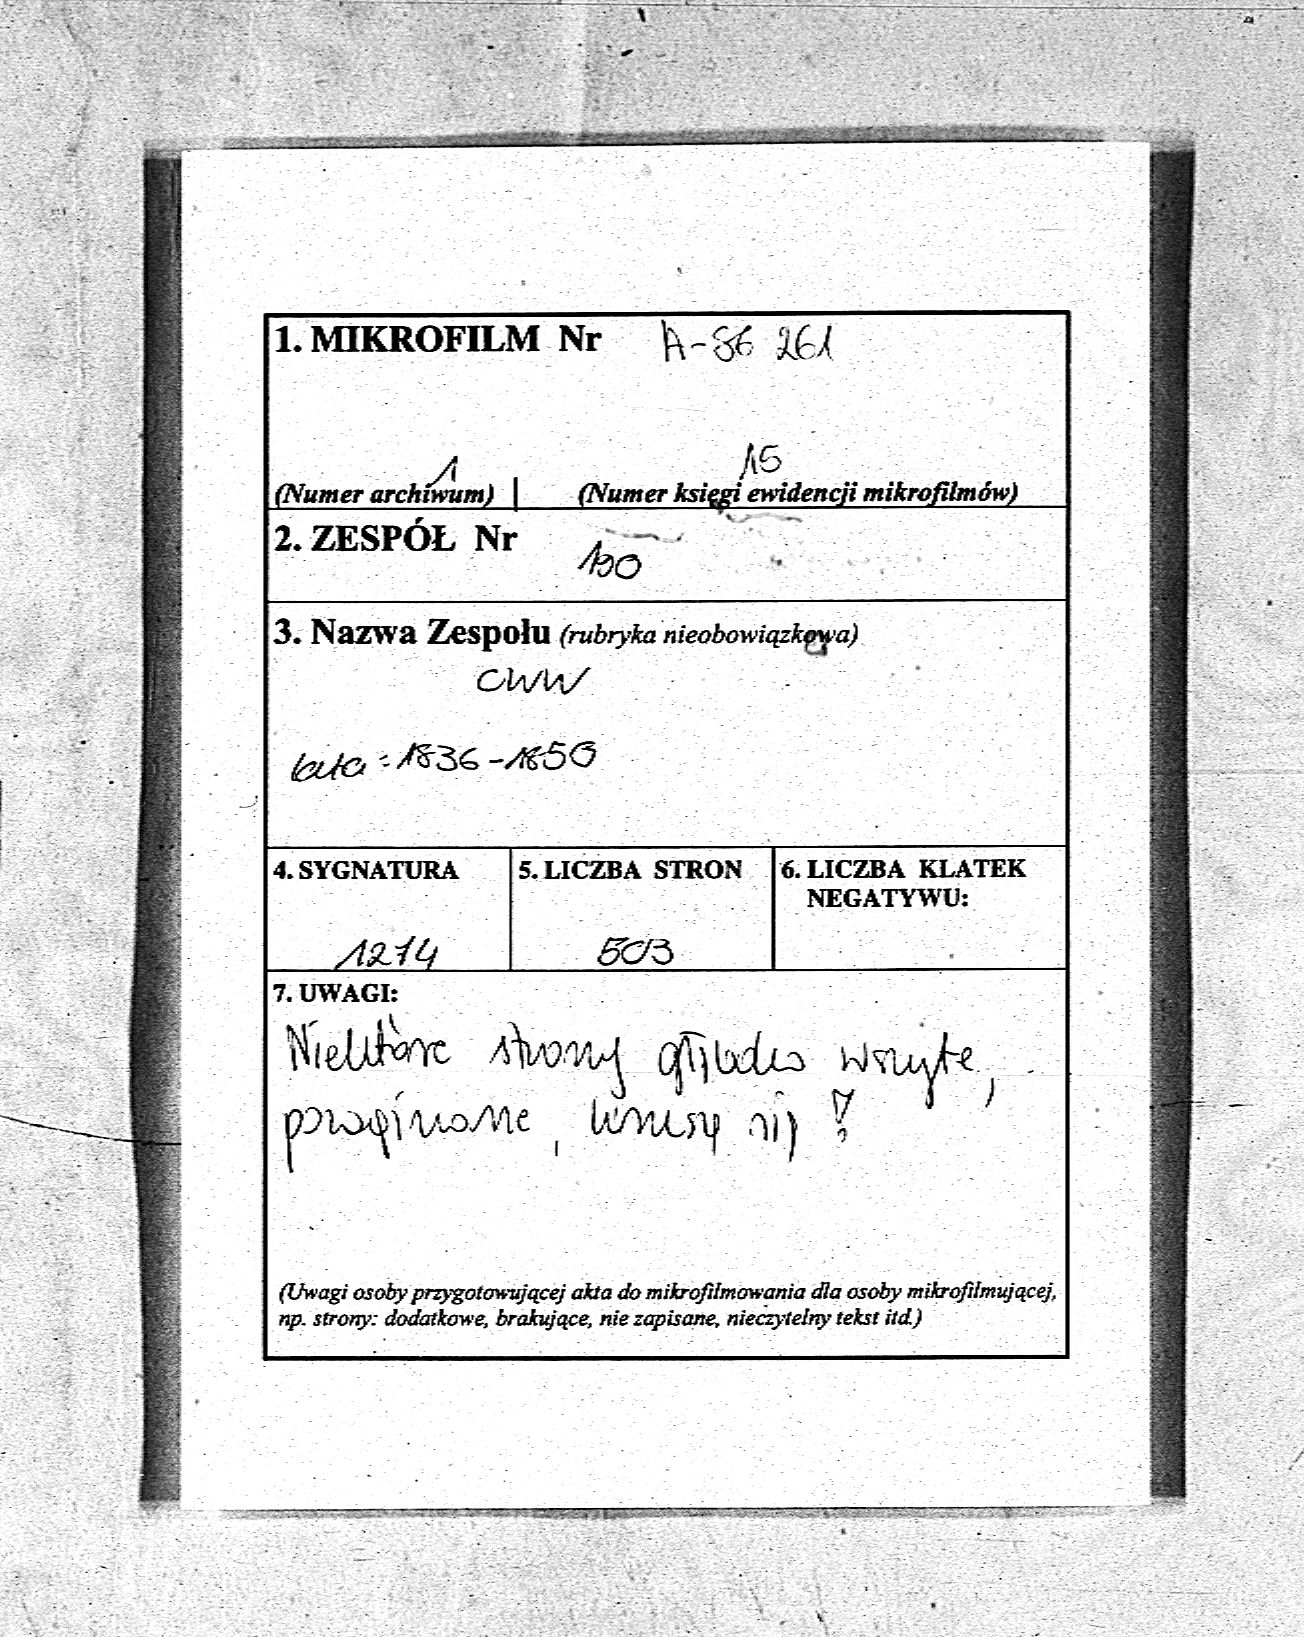 1. MIKROFILM Nr A-86 261
1 15
(Numer archiwum) | (Numer księgi ewidencji mikrofilmów)
2. ZESPÓŁ Nr 190
3. Nazwa Zespołu (rubryka nieobowiązkowa)
CWW
lata: 1836-1850
4. SYGNATURA 5. LICZBA STRON 6. LICZBA KLATEK
NEGATYWU:
1274 503
7. UWAGI:
Niektóre strony głęboko wszyte,
,
(Uwagi osoby przygotowującej akta do mikrofilmowania dla osoby mikrofilmującej,
np. strony: dodatkowe, brakujące, nie zapisane, nieczytelny tekst itd.)